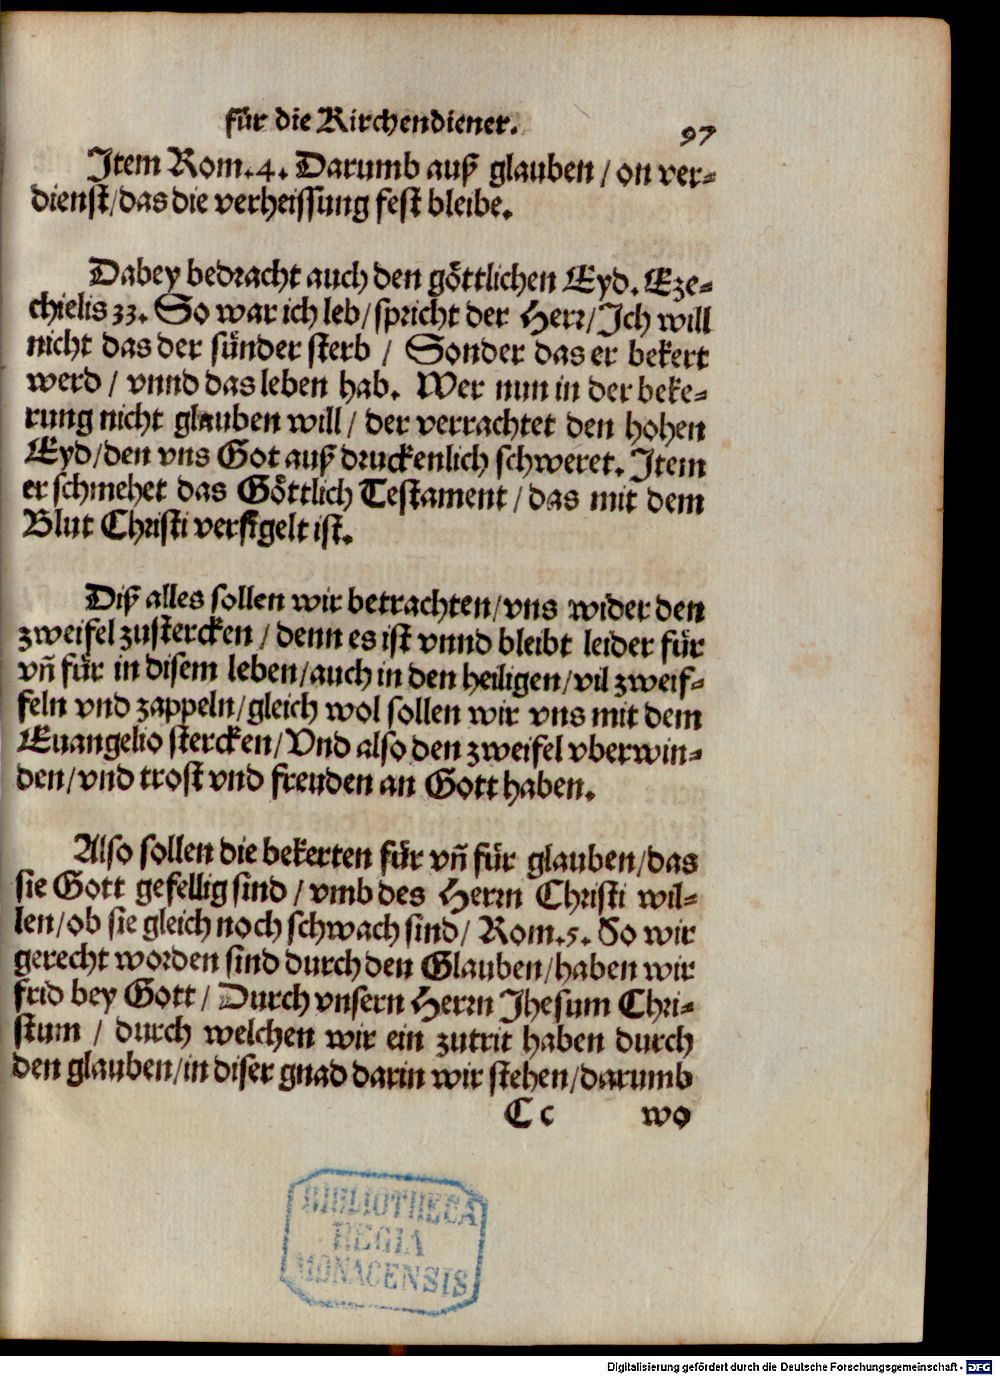 für die Kirchendiener.
97
Item Rom.4. Darumb auß glauben / on ver-
dienst/das die verheissung fest bleibe.
Dabey bedracht auch den göttlichen Eyd. Eze-
chielis 33. So war ich leb/spricht der Herr/Ich will
nicht das der sünder sterb / Sonder das er bekert
werd / vnnd das leben hab. Wer nun in der beke-
rung nicht glauben will/ der verrachtet den hohen
Eyd/den vns Got auß druckenlich schweret. Item
er schmehet das Göttlich Testament / das mit dem
Blut Christi versigelt ist.
Diß alles sollen wir betrachten/vns wider den
zweifel zustercken / denn es ist vnnd bleibt leider für
vñ für in disem leben/auch in den heiligen/vil zweif-
feln vnd zappeln/gleich wol sollen wir vns mit dem
Euangelio stercken/Vnd also den zweifel vberwin-
den/vnd trost vnd freuden an Gott haben.
Also sollen die bekerten für vñ für glauben/das
sie Gott gefellig sind / vmb des Herrn Christi wil-
len/ob sie gleich noch schwach sind/ Rom.5. So wir
gerecht worden sind durch den Glauben/haben wir
frid bey Gott / Durch vnsern Herrn Jhesum Chri-
stum / durch welchen wir ein zutrit haben durch
den glauben/in diser gnad darin wir stehen/darumb
C c wo
BIBLIOTHECA
REGIA
MONACENSIS
Digitalisierung gefördert durch die Deutsche Forschungsgemeinschaft - DFG